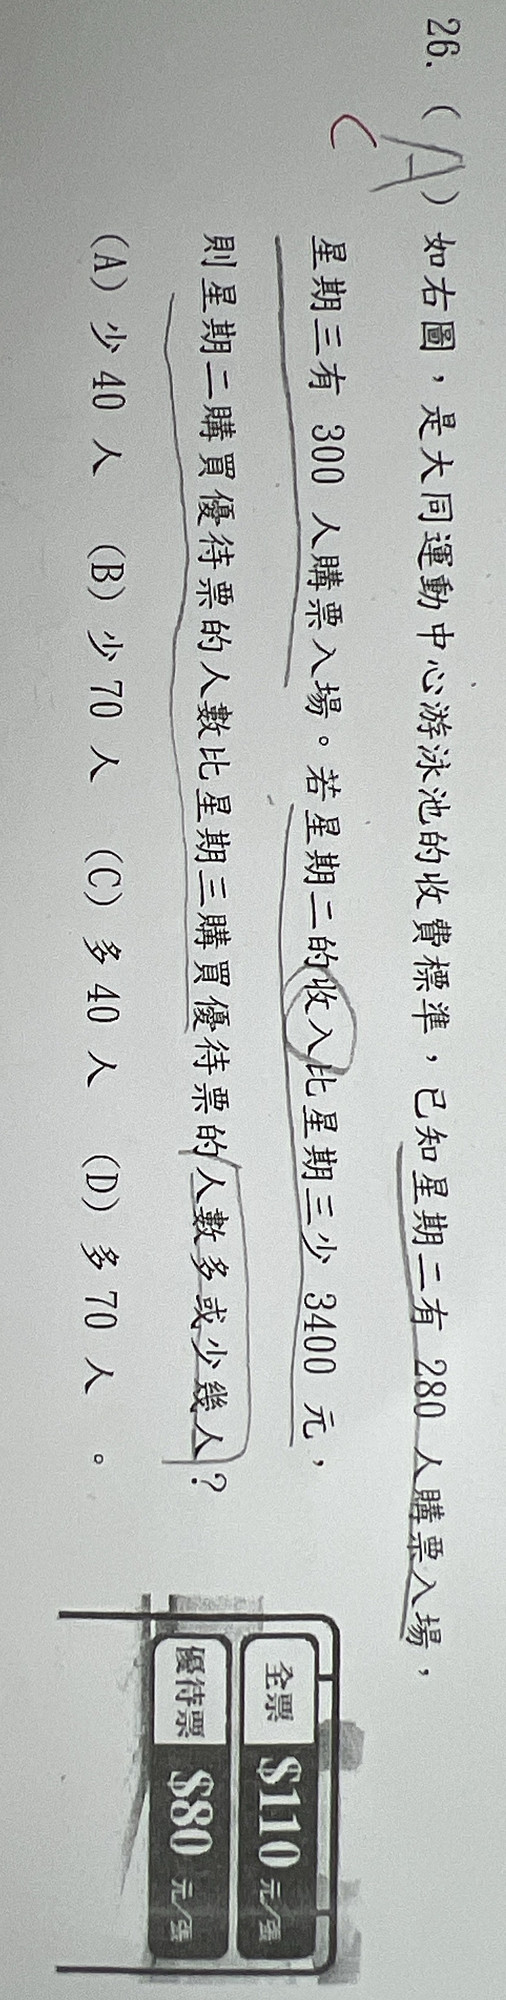 26. ( A ) 如右圖，是大同運動中心游泳池的收費標準，已知星期二有 280 人購票入場，
C
星期三有 300 人購票入場。若星期二的收入比星期三少 3400 元，
則星期二購買優待票的人數比星期三購買優待票的人數多或少幾人？
(A) 少 40 人 (B) 少 70 人 (C) 多 40 人 (D) 多 70 人 。
全票 $110 元/張
優待票 $80 元/張